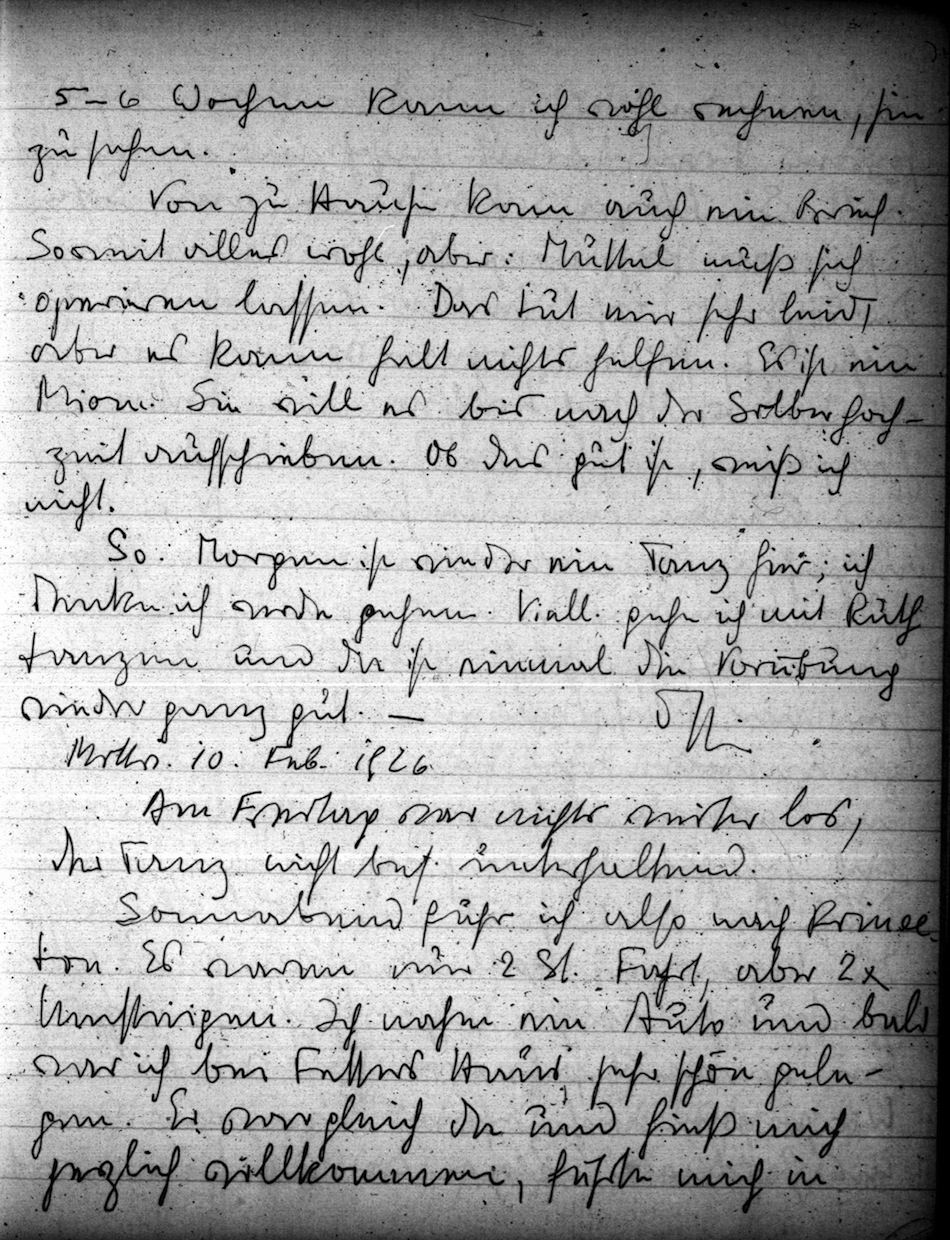 5–6 Wochen kann ich wohl rechnen, sie
zu sehen.
Von zu Hause kam auch ein Brief.
Soweit alles wohl, aber: Muttel muß sich
operieren lassen. Das tut mir sehr leid,
aber es kann halt nichts helfen. Es ist ein
Miom. Sie will es bis nach der Silberhoch-
zeit aufschieben. Ob das gut ist, weiß ich
nicht.
So. Morgen ist wieder ein Tanz hier; ich
denke ich werde gehen. Viell. gehe ich mit Ruth
tanzen und da ist einmal die Vorübung
wieder ganz gut. —
10. Feb. 1926
Am Freitag war nichts weiter los,
der Tanz nicht bes. unterhaltend.
Sonnabend fuhr ich also nach Prince-
ton. Es waren nur 2 St. Fahrt, aber 2x
Umsteigen. Ich nahm ein Auto und bald
war ich bei Haus, sehr schön gele-
gen. Er war gleich da und hieß mich
herzlich willkommen, führte mich in